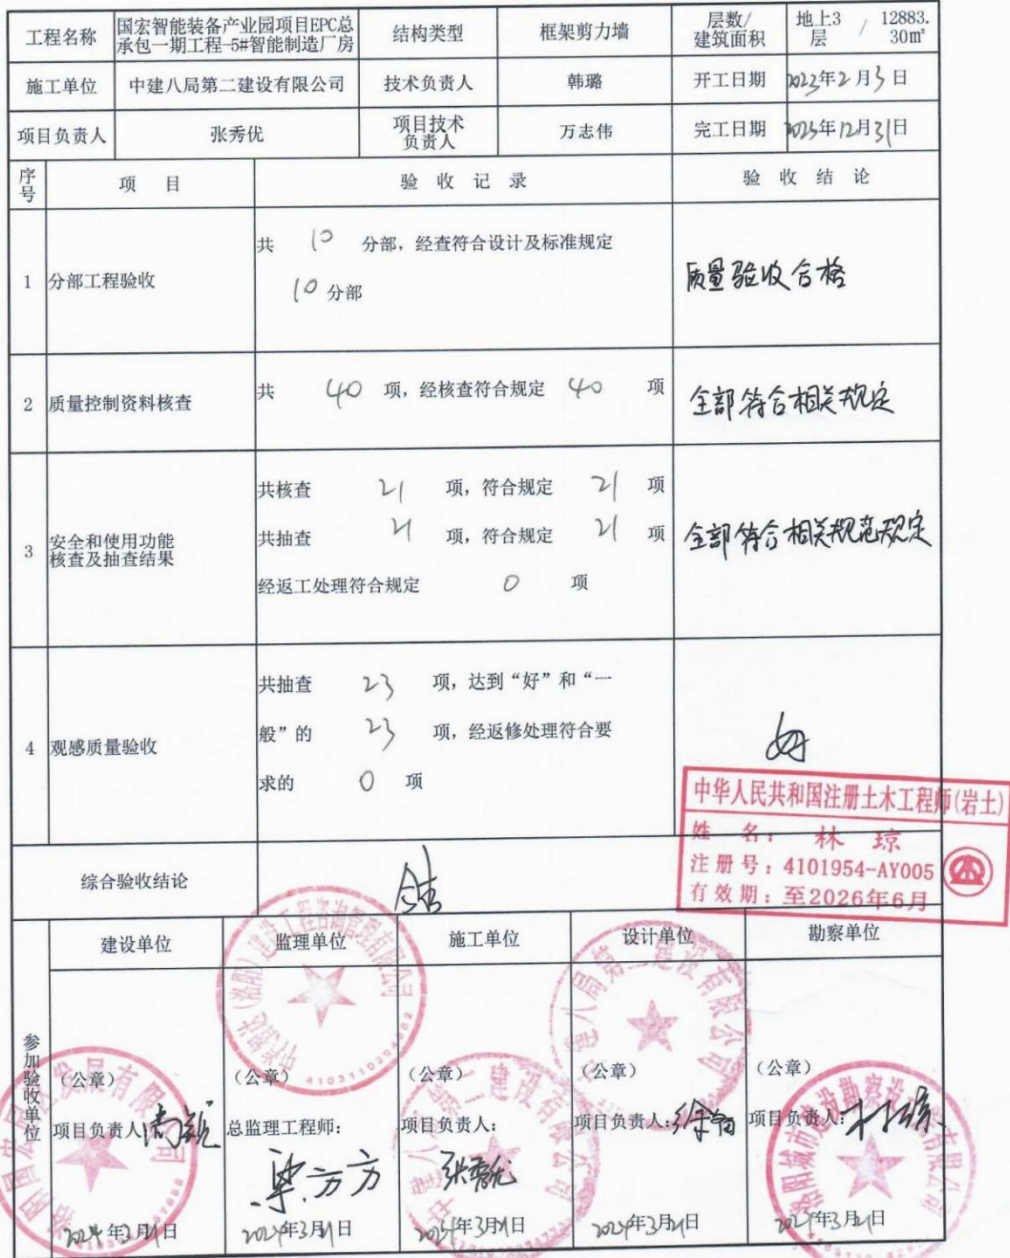 工程名称 国宏智能装备产业园项目EPC总承包一期工程-5#智能制造厂房 结构类型 框架剪力墙 层数/建筑面积 地上3层 / 12883.30㎡
施工单位 中建八局第二建设有限公司 技术负责人 韩璐 开工日期 2023年2月3日
项目负责人 张秀优 项目技术负责人 万志伟 完工日期 2023年12月31日
序号 项 目 验 收 记 录 验 收 结 论
1 分部工程验收
共 10 分部，经查符合设计及标准规定
10 分部
质量验收合格
2 质量控制资料核查 共 40 项，经核查符合规定 40 项 全部符合相关规定
3 安全和使用功能核查及抽查结果
共核查 21 项，符合规定 21 项
共抽查 21 项，符合规定 21 项
经返工处理符合规定 0 项
全部符合相关规范规定
4 观感质量验收
共抽查 23 项，达到“好”和“一
般”的 23 项，经返修处理符合要
求的 0 项
好
中华人民共和国注册土木工程师(岩土)
姓 名：林 琼
注册号：4101954-AY005
有效期：至2026年6月
综合验收结论 合格
参加验收单位
建设单位 监理单位 施工单位 设计单位 勘察单位
（公章） （公章） （公章） （公章） （公章）
项目负责人 总监理工程师： 项目负责人： 项目负责人： 项目负责人：
梁方方 张秀优 林琼
2024年3月21日 2024年3月21日 2024年3月21日 2024年3月21日 2024年3月21日